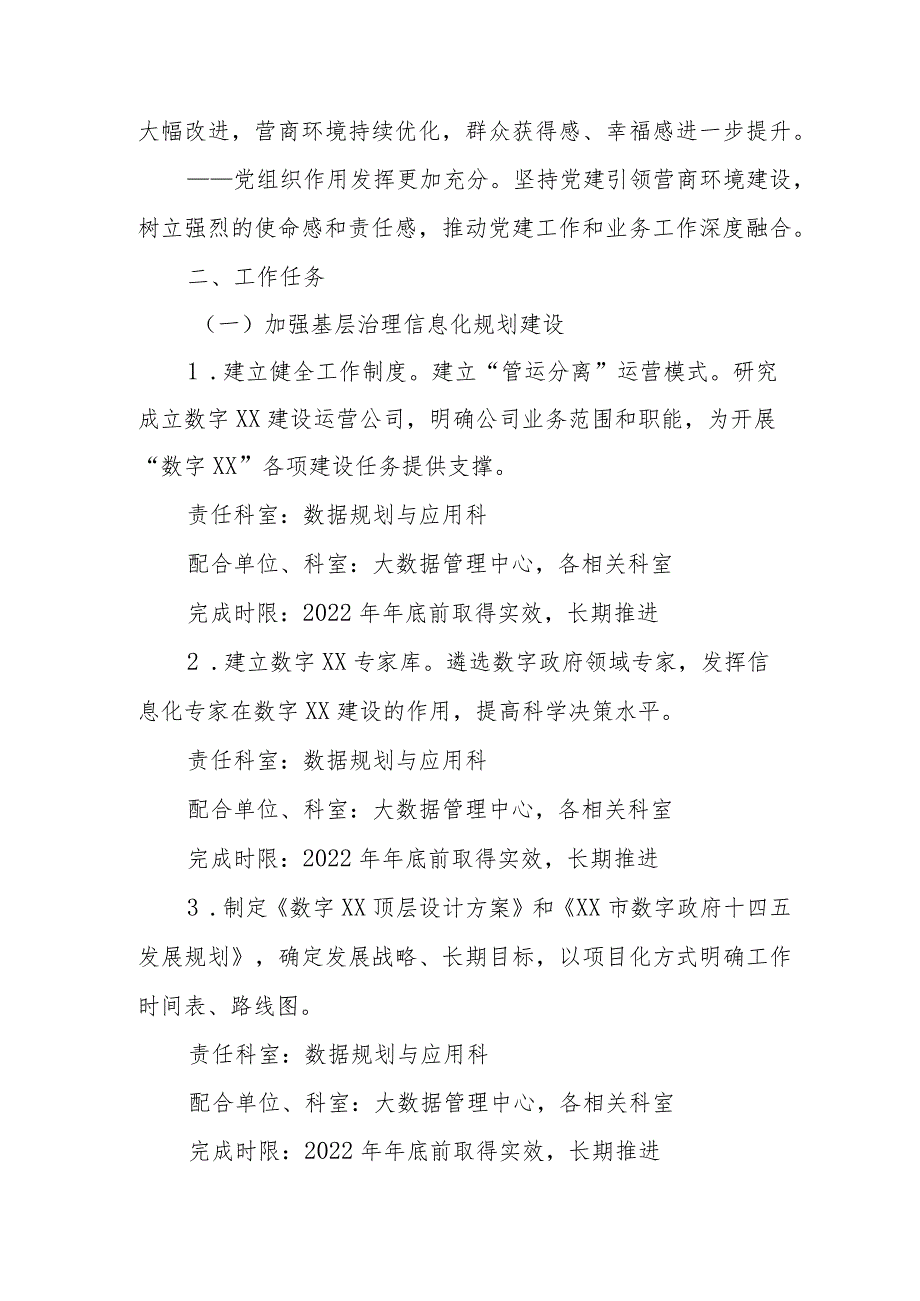 大幅改进，营商环境持续优化，群众获得感、幸福感进一步提升。
——党组织作用发挥更加充分。坚持党建引领营商环境建设，
树立强烈的使命感和责任感，推动党建工作和业务工作深度融合。
二、工作任务
（一）加强基层治理信息化规划建设
1.建立健全工作制度。建立“管运分离”运营模式。研究
成立数字XX建设运营公司，明确公司业务范围和职能，为开展
“数字XX”各项建设任务提供支撑。
责任科室：数据规划与应用科
配合单位、科室：大数据管理中心，各相关科室
完成时限：2022年年底前取得实效，长期推进
2.建立数字XX专家库。遴选数字政府领域专家，发挥信
息化专家在数字XX建设的作用，提高科学决策水平。
责任科室：数据规划与应用科
配合单位、科室：大数据管理中心，各相关科室
完成时限：2022年年底前取得实效，长期推进
3.制定《数字XX顶层设计方案》和《XX市数字政府十四五
发展规划》，确定发展战略、长期目标，以项目化方式明确工作
时间表、路线图。
责任科室：数据规划与应用科
配合单位、科室：大数据管理中心，各相关科室
完成时限：2022年年底前取得实效，长期推进